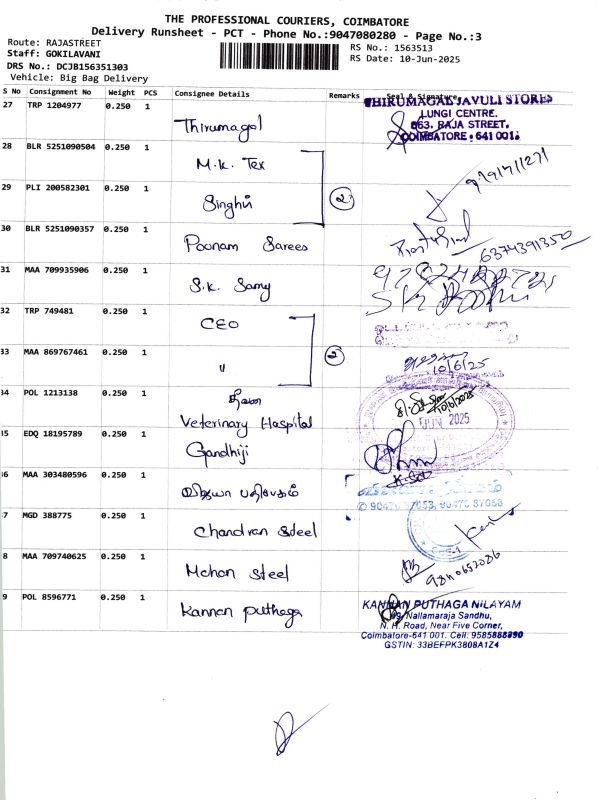 THE PROFESSIONAL COURIERS, COIMBATORE
Delivery Runsheet - PCT - Phone No.:9047080280 - Page No.:3
Route: RAJASTREET
Staff: GOKILAVANI
DRS No.: DCJB156351303
Vehicle: Big Bag Delivery
RS No.: 1563513
RS Date: 10-Jun-2025
S No Consignment No Weight PCS Consignee Details Remarks Seal & Signature
27 TRP 1204977 0.250 1 Thirumagal
THIRUMAGAL JAVULI STORES
LUNGI CENTRE.
863, RAJA STREET,
COIMBATORE - 641 001.
28 BLR 5251090504 0.250 1 M.K. Tex
29 PLI 200582301 0.250 1 Singhvi
2
30 BLR 5251090357 0.250 1 Poonam Sarees
6374391350
31 MAA 709935906 0.250 1 S.K. Samy
32 TRP 749481 0.250 1 CEO
33 MAA 869767461 0.250 1 "
2
10/6/25
34 POL 1213138 0.250 1
Veterinary Hospital
10/6/2025
JUN 2025
35 EDQ 18195789 0.250 1 Gandhiji
36 MAA 303480596 0.250 1 விஜயா பதிப்பகம்
37 MGD 388775 0.250 1 Chandran Steel
38 MAA 709740625 0.250 1 Mohan Steel
9840652086
39 POL 8596771 0.250 1 Kannan puthaga
KANNAN PUTHAGA NILAYAM
Nallamaraja Sandhu,
N. H. Road, Near Five Corner,
Coimbatore-641 001. Cell: 9585888890
GSTIN: 33BEFPK3808A1Z4